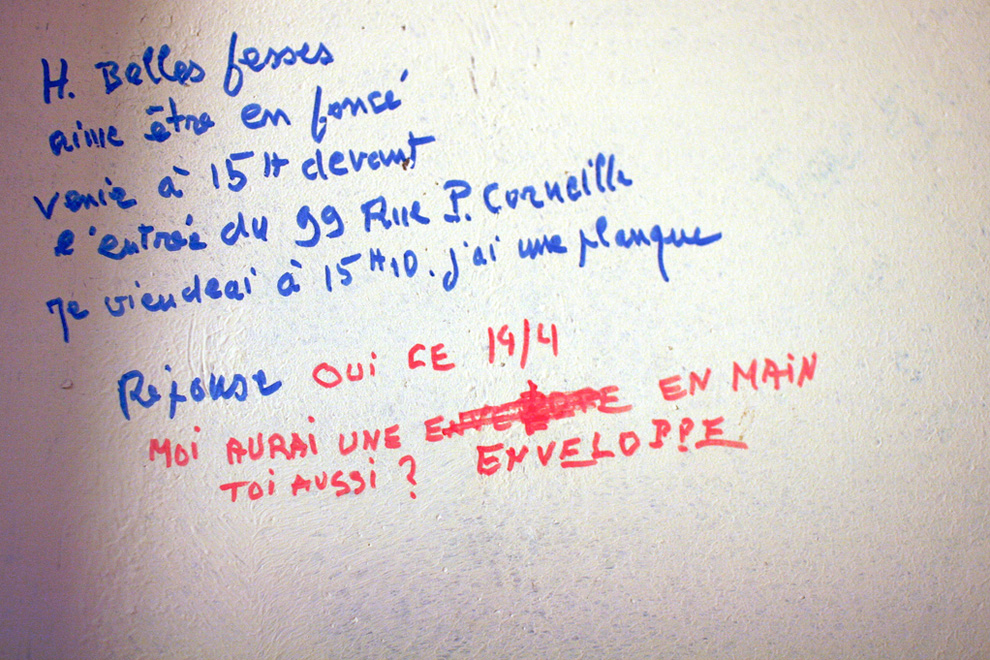 H. Belles fesses
aime être en foncé
venir à 15H devant
l'entrée du 99 Rue P. Corneille
Je viendrai à 15H10. j'ai une planque
Réponse OUi CE 19/4
MOi AURAi UNE ENVELOPPE EN MAiN
TOi AUSSi ? ENVELOPPE